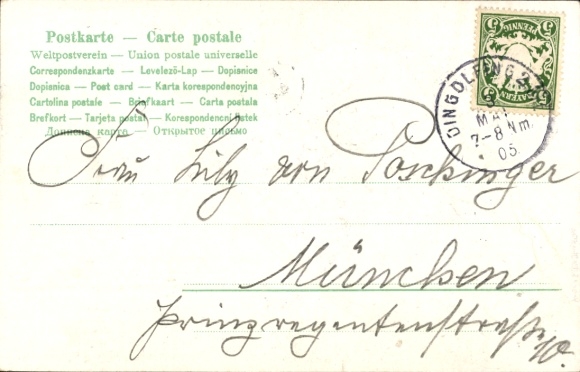 Postkarte — Carte postale
Weltpostverein — Union postale universelle
Correspondenzkarte — Levelező-Lap — Dopisnice
Dopisnica — Post card — Karta korespondencyjna
Cartolina postale — Briefkaart — Carta postala
Brefkort — Tarjeta postal — Korespondencni listek
Дописна карта — Открытое письмо
5 PFENNIG 5
BAYERN
DINGOLFING
MAI
7–8 Nm.
05
Frau Lily von Poschinger
München
Prinzregentenstraße